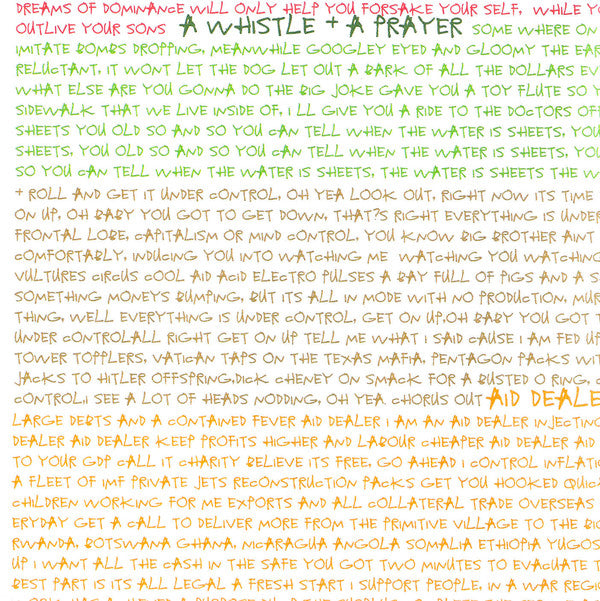 DREAMS OF DOMINANCE WILL ONLY HELP YOU FORSAKE YOUR SELF, WHILE Y
OUTLIVE YOUR SONS A WHISTLE + A PRAYER SOME WHERE ON
IMITATE BOMBS DROPPING, MEANWHILE GOOGLEY EYED AND GLOOMY THE EAR
RELUCTANT, IT WONT LET THE DOG LET OUT A BARK OF ALL THE DOLLARS EV
WHAT ELSE ARE YOU GONNA DO THE BIG JOKE GAVE YOU A TOY FLUTE SO Y
SIDEWALK THAT WE LIVE INSIDE OF, I LL GIVE YOU A RIDE TO THE DOCTORS OFF
SHEETS YOU OLD SO AND SO YOU CAN TELL WHEN THE WATER IS SHEETS, YOU
SHEETS, YOU OLD SO AND SO YOU CAN TELL WHEN THE WATER IS SHEETS, YO
SO YOU CAN TELL WHEN THE WATER IS SHEETS, THE WATER IS SHEETS THE W
+ ROLL AND GET IT UNDER CONTROL, OH YEA LOOK OUT, RIGHT NOW ITS TIME
ON UP, OH BABY YOU GOT TO GET DOWN, THAT?S RIGHT EVERYTHING IS UNDER
FRONTAL LOBE, CAPITALISM OR MIND CONTROL, YOU KNOW BIG BROTHER AINT
COMFORTABLY, INDUCING YOU INTO WATCHING ME WATCHING YOU WATCHING
VULTURES CIRCUS COOL AID ACID ELECTRO PULSES A BAY FULL OF PIGS AND A S
SOMETHING MONEYS BUMPING, BUT ITS ALL IN MODE WITH NO PRODUCTION, MUR
THING, WELL EVERYTHING IS UNDER CONTROL, GET ON UP,OH BABY YOU GOT T
UNDER CONTROLALL RIGHT GET ON UP TELL ME WHAT I SAID CAUSE I AM FED UP
TOWER TOPPLERS, VATICAN TAPS ON THE TEXAS MAFIA, PENTAGON PACKS WIT
JACKS TO HITLER OFFSPRING,DICK CHENEY ON SMACK FOR A BUSTED O RING, C
CONTROL,I SEE A LOT OF HEADS NODDING, OH YEA CHORUS OUT AID DEALE
LARGE DEBTS AND A CONTAINED FEVER AID DEALER I AM AN AID DEALER INJECTING
DEALER AID DEALER KEEP PROFITS HIGHER AND LABOUR CHEAPER AID DEALER AID
TO YOUR GDP CALL IT CHARITY BELIEVE ITS FREE, GO AHEAD I CONTROL INFLATIO
A FLEET OF IMF PRIVATE JETS RECONSTRUCTION PACKS GET YOU HOOKED QUIC
CHILDREN WORKING FOR ME EXPORTS AND ALL COLLATERAL TRADE OVERSEAS
ERYDAY GET A CALL TO DELIVER MORE FROM THE PRIMITIVE VILLAGE TO THE BIG
RWANDA, BOTSWANA GHANA, NICARAGUA ANGOLA SOMALIA ETHIOPIA YUGOS
UP I WANT ALL THE CASH IN THE SAFE YOU GOT TWO MINUTES TO EVACUATE T
BEST PART IS ITS ALL LEGAL A FRESH START I SUPPORT PEOPLE, IN A WAR REGIO